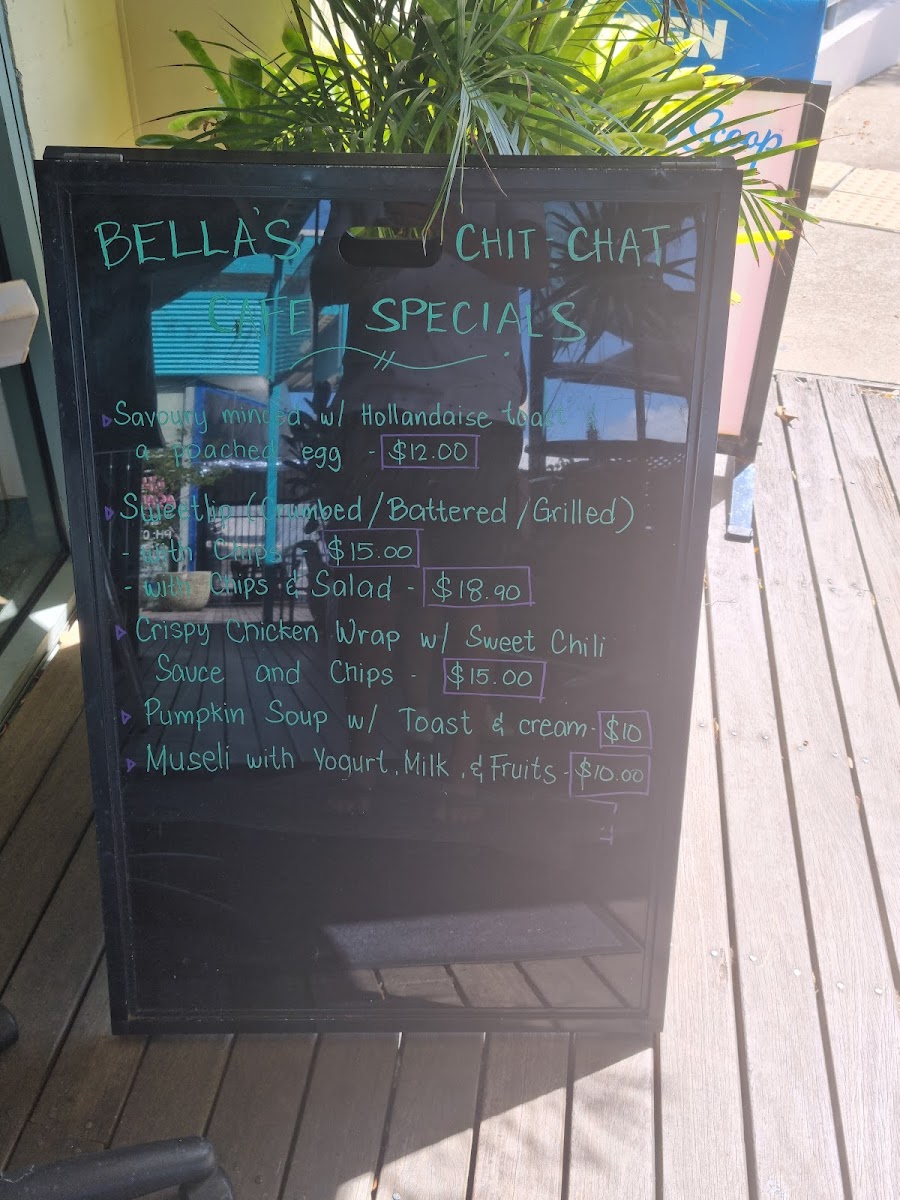 EN
Scoop
BELLA'S CHIT-CHAT
CAFE SPECIALS
Savoury minced w/ Hollandaise toast
a poached egg - $12.00
Sweetlip (Crumbed/Battered/Grilled)
- with Chips - $15.00
- with Chips & Salad - $18.90
Crispy Chicken Wrap w/ Sweet Chili
Sauce and Chips - $15.00
Pumpkin Soup w/ Toast & cream - $10
Museli with Yogurt, Milk, & Fruits - $10.00